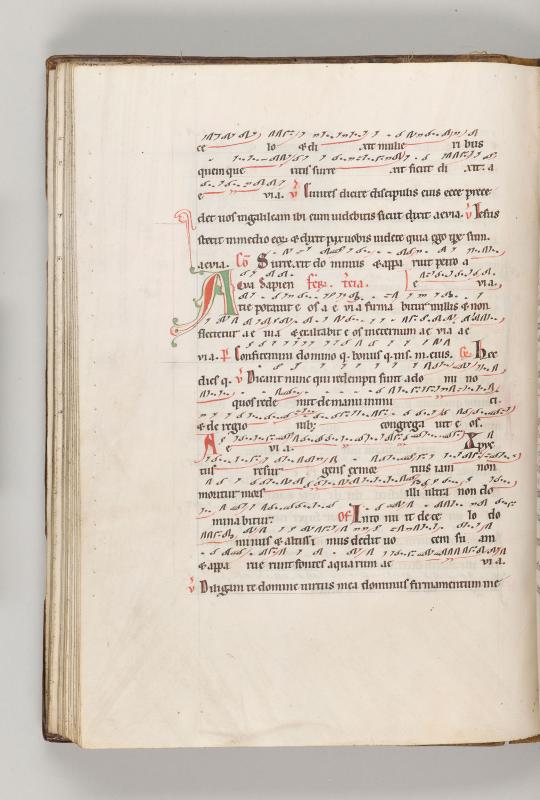 ce lo & di xit mulie ri bus
quem que ritis surre xit sicut di xit a
e via. v Eunites dicite discipulis eius ecce prece
det uos ingalileam ibi eum uidebitis sicut dixit aevia. v Iesus
stetit inmedio eoꝝ & dixit pax uobis uidete quia ego ipse sum.
aevia. Cō Surre xit do minus & appa ruit petro a
Aqua sapien feꝝ. tcia. e via.
tie potauit e os a e via firma bitur inillis & non
flectetur ae uia & exaltabit e os ineternum ae via ae
via. p̄. Confitemini domino q. bonus q. ins. m. eius. Gꝝ. Hec
dies q. v Dicant nunc qui redempti sunt a do mi no
quos rede mit de manu inimi ci.
& de regio nibꝫ congrega uit e os.
A e via. Xpc
tus resur gens exmor tuis iam non
moritur mors illi ultra non do
minabitur. Of Into nu it de ce lo do
minus & altissi mus dedit uo cem su am
& appa rue runt fontes aquarum ae via.
v Diligam te domine uirtus mea dominus firmamentum me